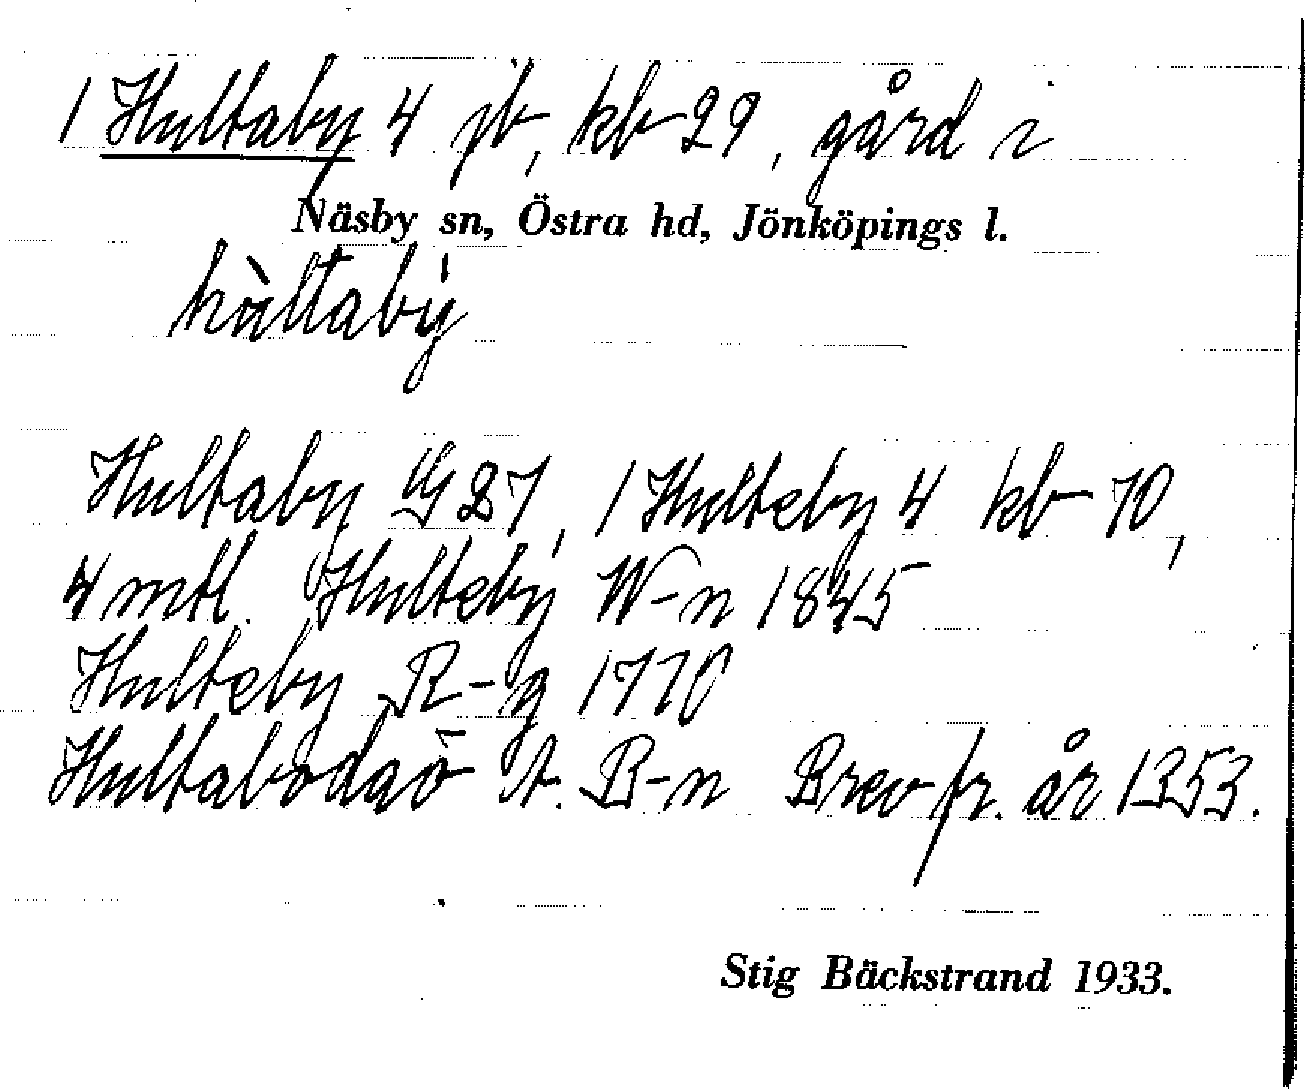 1 Hultaby 4 jb, kb 29, gård i
Näsby sn, Östra hd, Jönköpings l.
hùltabý
Hultaby G 27, 1 Hulteby 4 kb 70,
4 mtl. Hulteby W-n 1845
Hulteby R-g 1770
Hultabodaō t. B-n Brev fr. år 1353.
Stig Bäckstrand 1933.